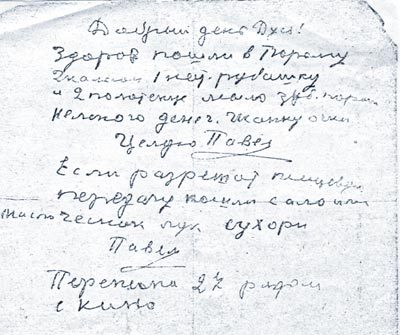 Добрый день Дуся!
Здоров пошли в Тюрьму
2 кальсон 1 неж. рубашку
и 2 полотенце мыло зуб. порош
немного денег. Шапку очки
Целую Павел
Если разрешат пищевую
передачу пошли сало или
масло чеснок лук сухари
Павел
Пересылка 27 рядом
с кино